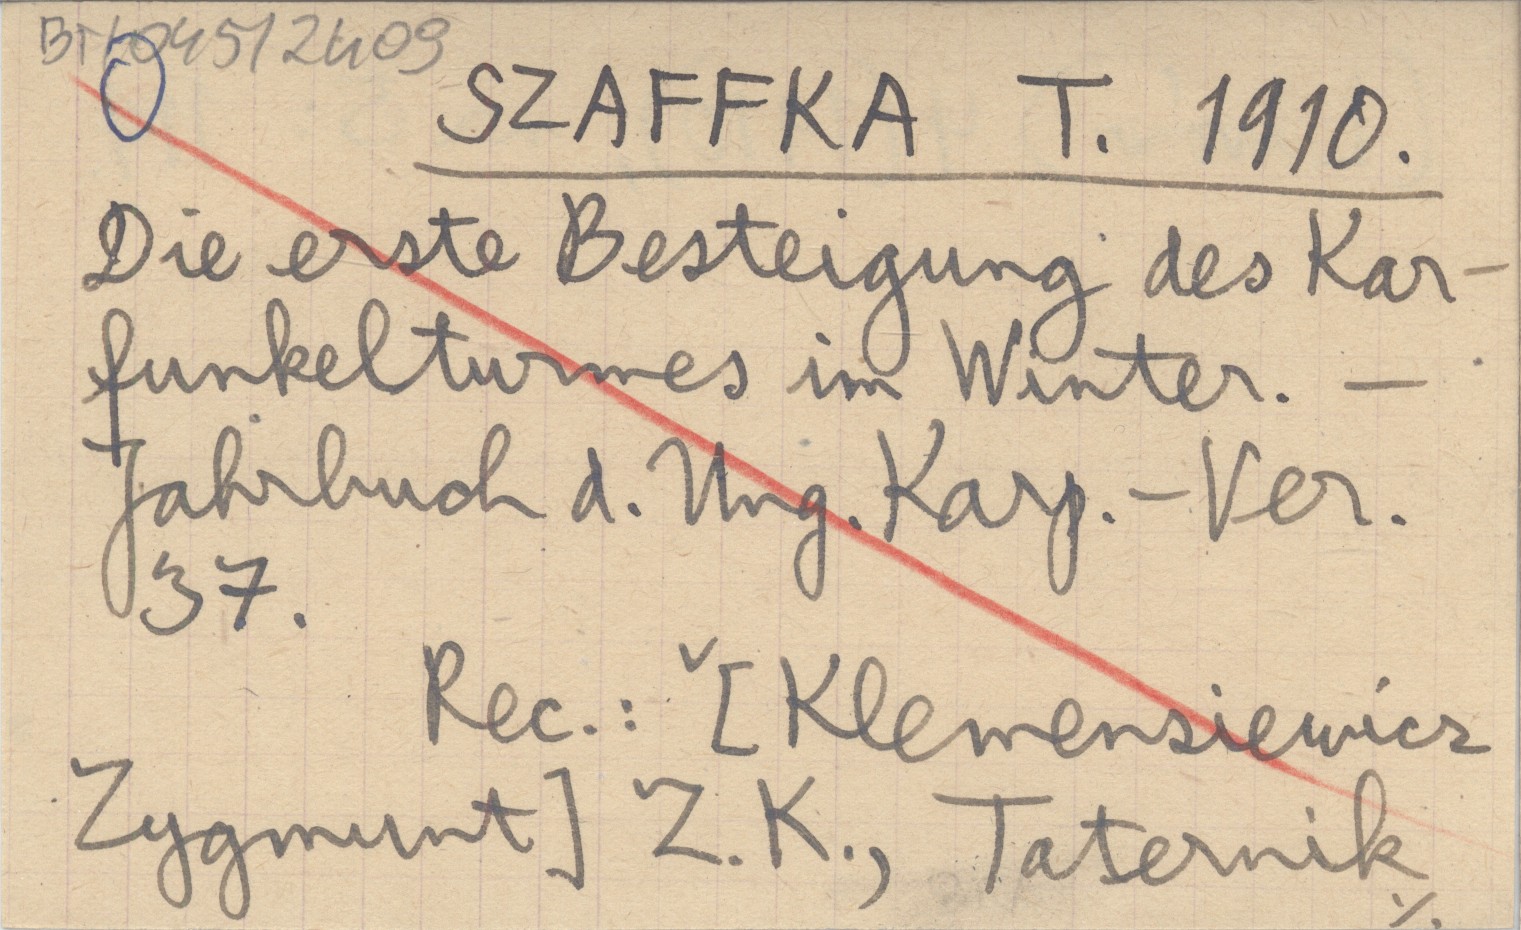 SZAFFKA T. 1910.
Die erste Besteigung des Kar-
funkelturmes im Winter. —
Jahrbuch d. Ung. Karp.-Ver.
37.
Rec.: [Klemensiewicz
Zygmunt] Z.K., Taternik
./.